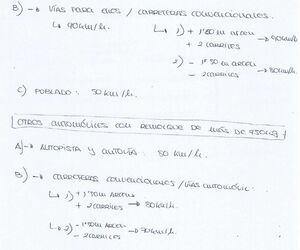 B) → VÍAS PARA ELLOS / CARRETERAS CONVENCIONALES.
↳ 90 km/h.
↳ 1) + 1'50 m arcen → 90 km/h
+ 2 carriles
2) - 1'50 m arcen → 80 km/h.
- 2 carriles
C) POBLADO : 50 km/h.
OTROS AUTOMÓVILES CON REMOLQUE DE MÁS DE 750 KG
A) → AUTOPISTA Y AUTOVÍA : 80 km/h.
B) → CARRETERAS CONVENCIONALES / VÍAS AUTOMÓVIL:
↳ 1) + 1'50 m ARCEN → 80 km/h.
+ 2 carriles
↳ 2) - 1'50 m ARCEN → 70 km/h.
- 2 carriles